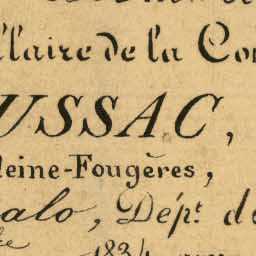 llaire de la Co
USSAC,
leine-Fougères,
alo, Dépt. de
1834